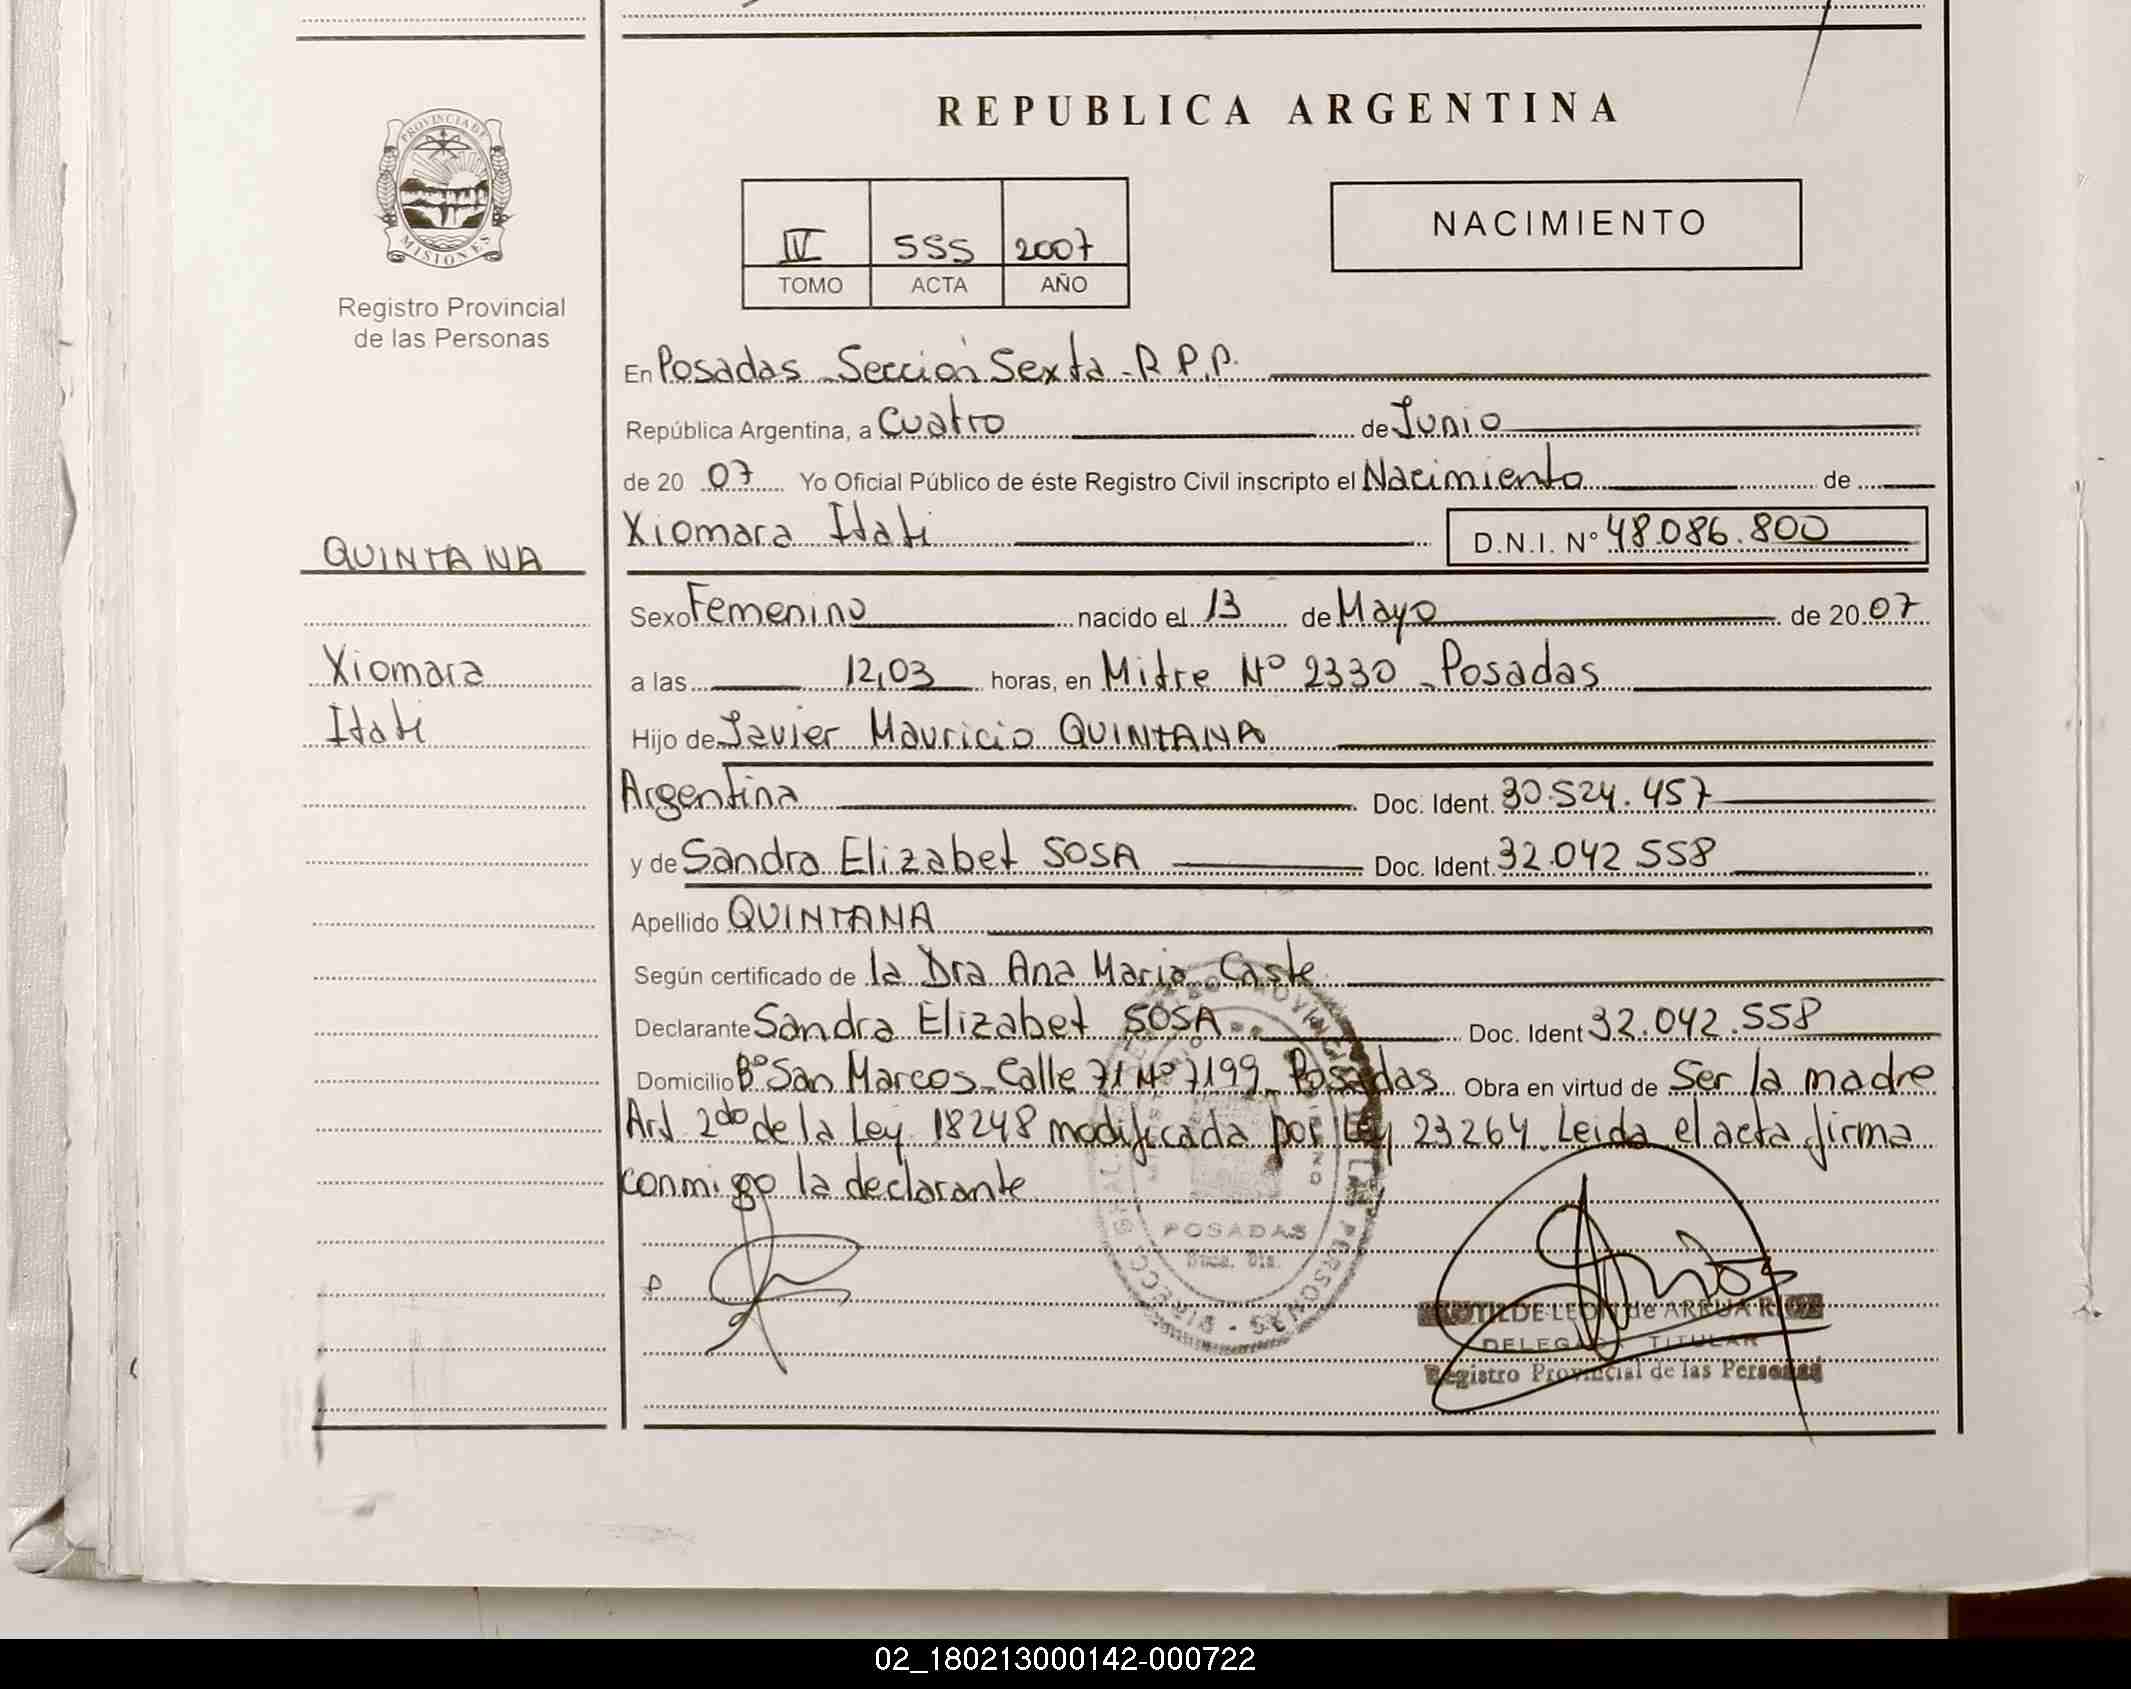 REPUBLICA ARGENTINA
PROVINCIA DE
MISIONES
Registro Provincial
de las Personas
IV 555 2007
TOMO ACTA AÑO
NACIMIENTO
En Posadas - Sección Sexta - R.P.P.
República Argentina, a Cuatro de Junio
de 20 07 Yo Oficial Público de éste Registro Civil inscripto el Nacimiento de
Xiomara Itati D.N.I. N° 48.086.800
QUINTANA
Sexo Femenino nacido el 13 de Mayo de 20 07
Xiomara
a las 12,03 horas, en Mitre N° 2330 - Posadas
Itati
Hijo de Javier Mauricio QUINTANA
Argentina Doc. Ident. 30.524.457
y de Sandra Elizabet SOSA Doc. Ident. 32.042.558
Apellido QUINTANA
Según certificado de la Dra Ana Maria Caste
Declarante Sandra Elizabet SOSA Doc. Ident 32.042.558
Domicilio B° San Marcos - Calle 71 N° 7199 - Posadas Obra en virtud de Ser la madre
Art 2do de la Ley 18248 modificada por Ley 23264. Leida el acta firma
conmigo la declarante
POSADAS
LEON de ARRUA RIOS
DELEGADA TITULAR
Registro Provincial de las Personas
02_180213000142-000722